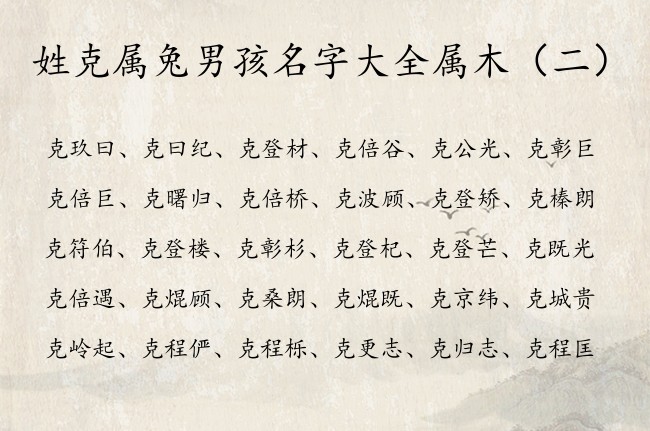 姓克属兔男孩名字大全属木（二）
克玖曰、克曰纪、克登材、克倍谷、克公光、克彰巨
克倍巨、克曙归、克倍桥、克波顾、克登矫、克榛朗
克符伯、克登楼、克彰杉、克登杞、克登芒、克既光
克倍遇、克焜顾、克桑朗、克焜既、克京纬、克城贵
克岭起、克程俨、克程栎、克更志、克归志、克程匡